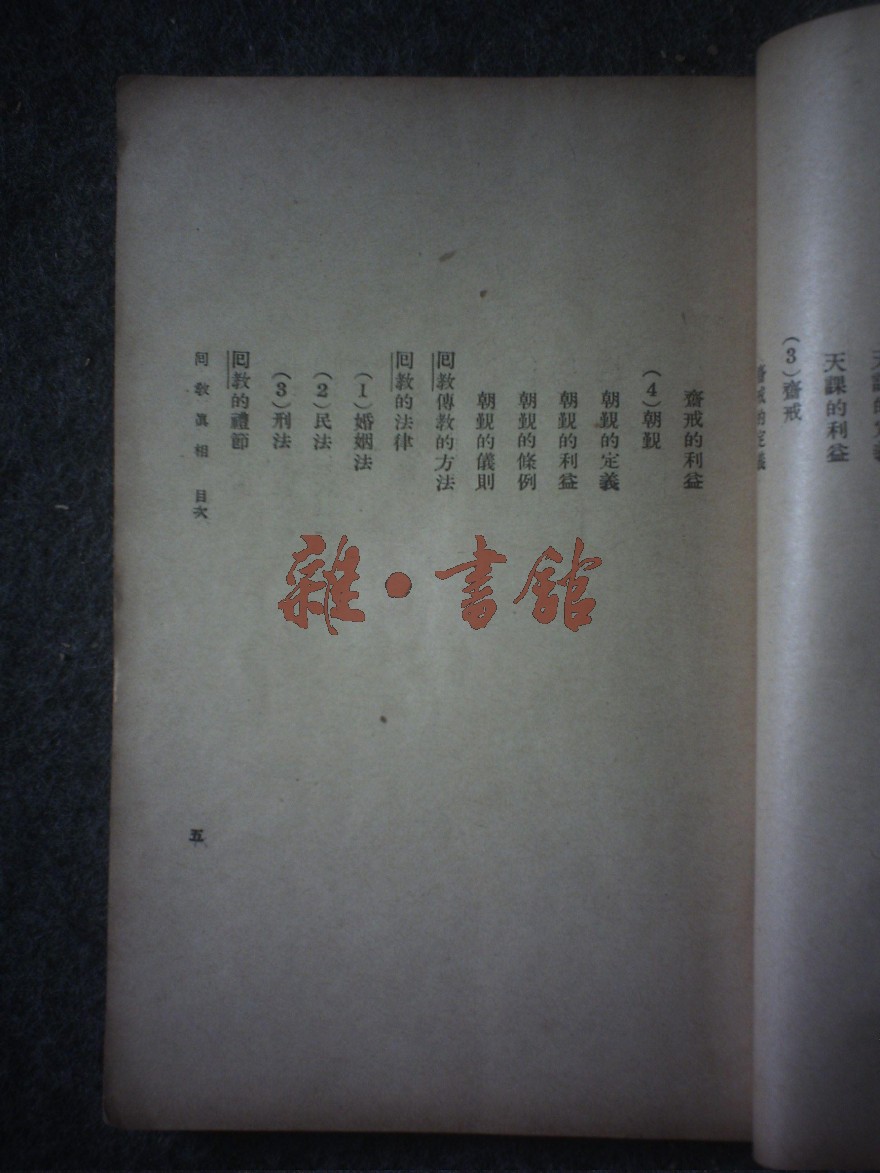 天課的利益
(3)齋戒
齋戒的定義
齋戒的利益
(4)朝覲
朝覲的定義
朝覲的利益
朝覲的條例
朝覲的儀則
囘教傳教的方法
囘教的法律
(1)婚姻法
(2)民法
(3)刑法
囘教的禮節
囘教眞相 目次
五
雜·書館